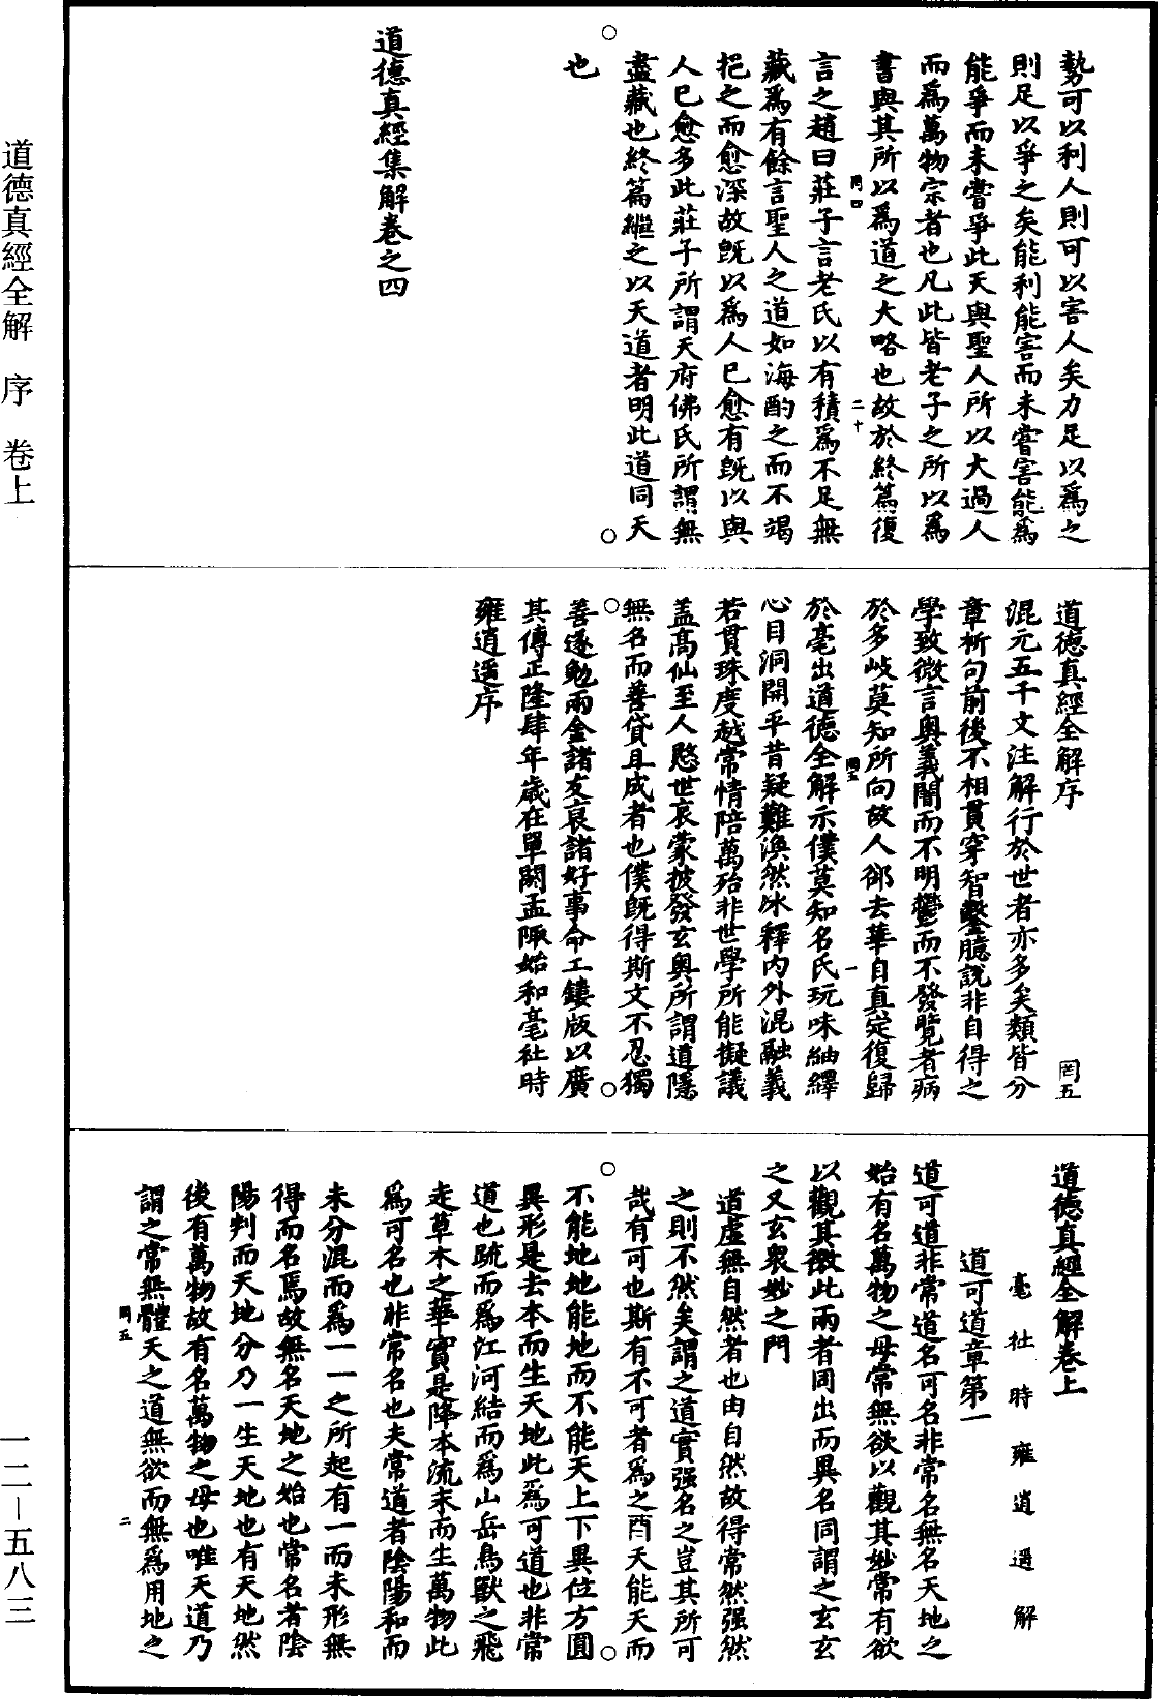 勢可以利人則可以害人矣力足以爲之
則足以爭之矣能利能害而未嘗害能爲
能爭而未嘗爭此天與聖人所以大過人
而爲萬物宗者也凡此皆老子之所以爲
書與其所以爲道之大略也故於終篇復
罔四
二十
言之趙曰莊子言老氏以有積爲不足無
藏爲有餘言聖人之道如海酌之而不竭
挹之而愈深故旣以爲人已愈有旣以與
人已愈多此莊子所謂天府佛氏所謂無
盡藏也終篇繼之以天道者明此道同天
也
道德真經集解卷之四
道德真經全解序
罔五
混元五千文注解行於世者亦多矣類皆分
章析句前後不相貫穿智鑿臆說非自得之
學致微言奧義闇而不明鬱而不發覽者病
於多岐莫知所向故人郤去華自真定復歸
罔五
一
於亳出道德全解示僕莫知名氏玩味紬繹
心目洞開平昔疑難渙然冰釋內外混融義
若貫珠度越常情陪萬殆非世學所能擬議
盖高仙至人愍世哀蒙披發玄奧所謂道隱
無名而善貸且成者也僕旣得斯文不忍獨
善遂勉兩金諸友裒諸好事命工鏤版以廣
其傳正隆肆年歲在單閼孟陬始和亳社時
雍逍遥序
道德真經全解卷上
亳社時雍逍遥解
道可道章第一
道可道非常道名可名非常名無名天地之
始有名萬物之母常無欲以觀其妙常有欲
以觀其徼此兩者同出而異名同謂之玄玄
之又玄衆妙之門
道虛無自然者也由自然故得常然强然
之則不然矣謂之道實强名之豈其所可
哉有可也斯有不可者爲之酉天能天而
不能地地能地而不能天上下異位方圓
異形是去本而生天地此爲可道也非常
道也疏而爲江河結而爲山岳鳥獸之飛
走草木之華實是降本流末而生萬物此
爲可名也非常名也夫常道者陰陽和而
未分混而爲一一之所起有一而未形無
得而名焉故無名天地之始也常名者陰
陽判而天地分乃一生天地也有天地然
後有萬物故有名萬物之母也唯天道乃
謂之常無體天之道無欲而無爲用地之
罔五
二
道德真經全解 序 卷上
一二—五八三